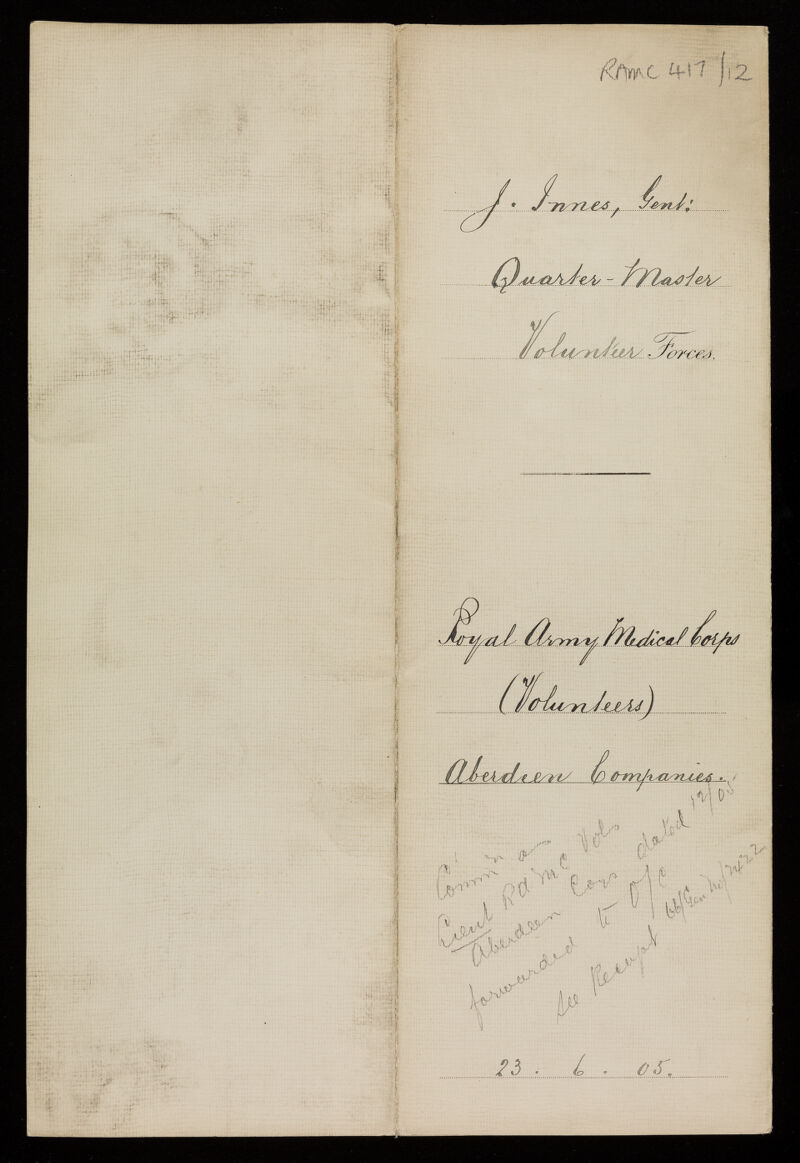 RAMC 417/12
J. Innes, Gent:
Quarter-Master
Volunteer Forces.
Royal Army Medical Corps
(Volunteers)
Aberdeen Companies.
Comm'n as
Lieut RAMC Vols
Aberdeen Coys dated 12/05
forwarded to O/C
See Receipt 66/Gen No/2422
23 . 6 . 05.